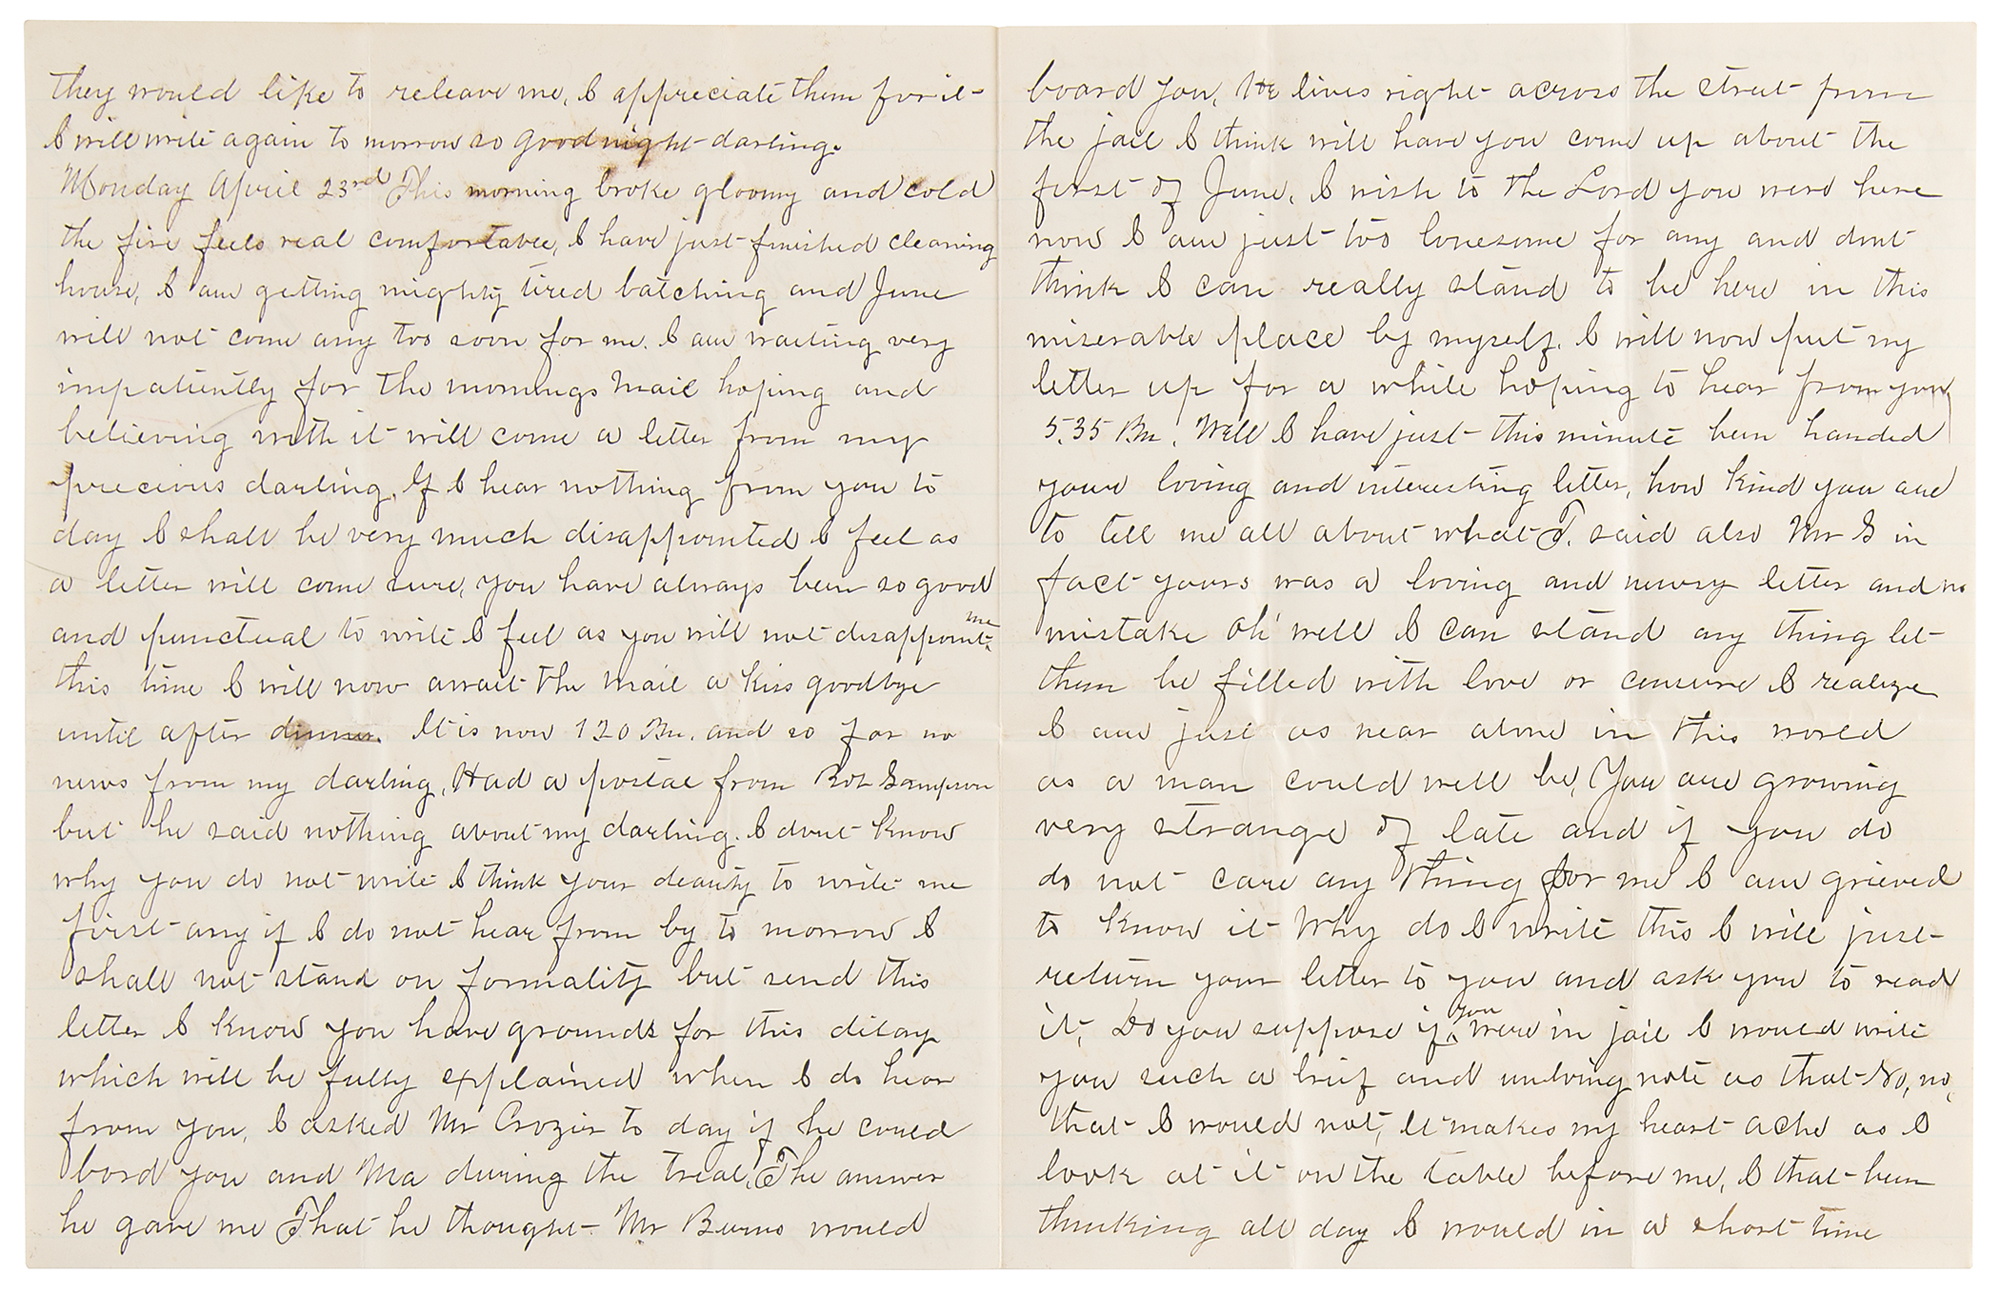 they would like to releave me, I appreciate them for it
I will write again to morrow so good night darling.
Monday April 23rd This morning broke gloomy and cold
the fire feels real comfortable, I have just finished cleaning
house, I am getting mighty tired batching and June
will not come any too soon for me. I am waiting very
impatiently for the mornings mail hoping and
believing with it will come a letter from my
precious darling, If I hear nothing from you to
day I shall be very much disappointed I feel as
a letter will come sure, you have always been so good
and punctual to write I feel as you will not disappoint me
this time I will now await the mail a kiss goodbye
until after dinner. It is now 120 Pm. and so far no
news from my darling, Had a postal from Bob Sampson
but he said nothing about my darling. I dont know
why you do not write I think your deauty to write me
first any if I do not hear from by to morrow I
shall not stand on formality but send this
letter I know you have grounds for this dilay
which will be fully explained when I do hear
from you, I asked Mr Crozier to day if he could
bord you and Ma during the treal, The answer
he gave me That he thought Mr Burns would
board you, He lives right across the street from
the jail I think will have you come up about the
first of June, I wish to the Lord you were here
now I am just too lonesome for any and dont
think I can really stand to be here in this
miserable place by myself. I will now put my
letter up for a while hoping to hear from you
5.35 Pm. Well I have just this minute been handed
your loving and interesting letter, how kind you are
to tell me all about what T. said also Mr G in
fact yours was a loving and newsy letter and no
mistake Oh' well I can stand any thing let
them be filled with love or censure I realize
I am just as near alone in this world
as a man could well be, You are growing
very strange of late and if you do
do not care any thing for me I am grieved
to know it Why do I write this I will just
return your letter to you and ask you to read
it, Do you suppose if you were in jail I would write
you such a brief and unloving note as that No, no,
that I would not, It makes my heart ache as I
look at it on the table before me, I that been
thinking all day I would in a short time